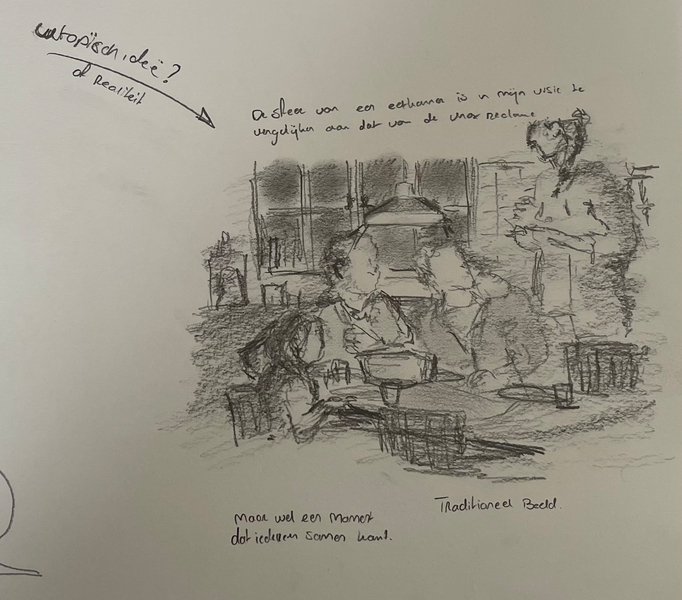 utopisch ideë?
of Realiteit
De sfeer van een eetkamer is in mijn visie te
vergelijken aan dat van de unox Reclame
Traditioneel Beeld.
Maar wel een Moment
dat iedereen samen komt.